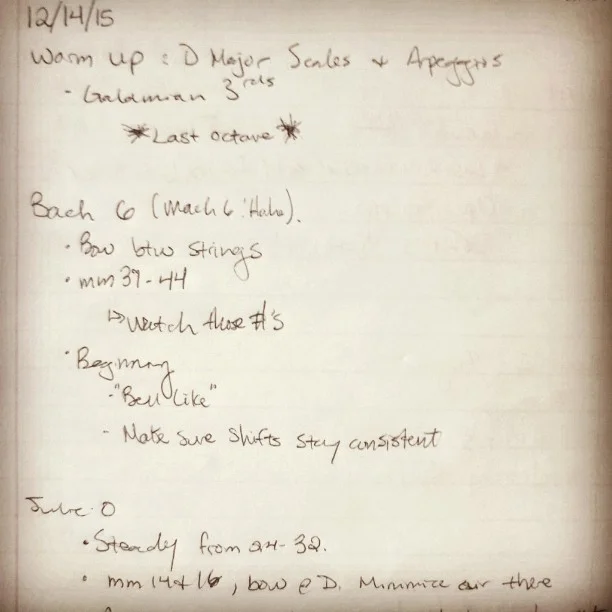 12/14/15
Warm up : D Major Scales + Arpeggios
- Galamian 3rds
*Last octave*
Bach 6 (Mach 6! Haha).
• Bow btw strings
• mm 37-44
↳ Watch those #'s
• Beginning
- "Bell like"
- Make sure shifts stay consistent
Julie-O
• Steady from 24-32.
• mm 14+16, bow @ D. Minimize air there